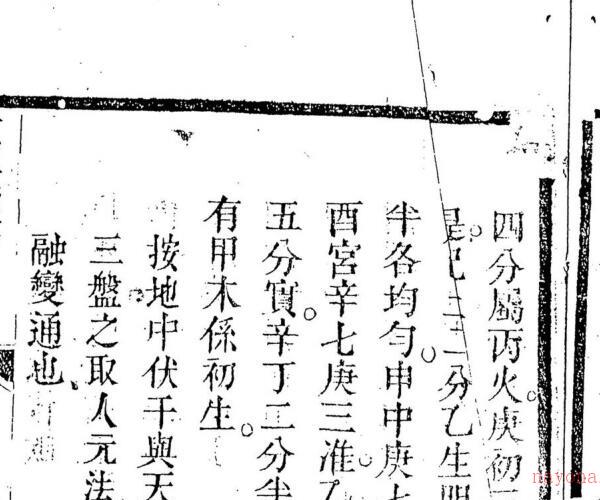 四分屬丙火庚初
是已二二分乙生
半各均勻申中庚七
酉宮辛七庚三准
五分實辛丁二分半
有甲木係初生
按地中伏干與天
三盤之取人元法
融變通也